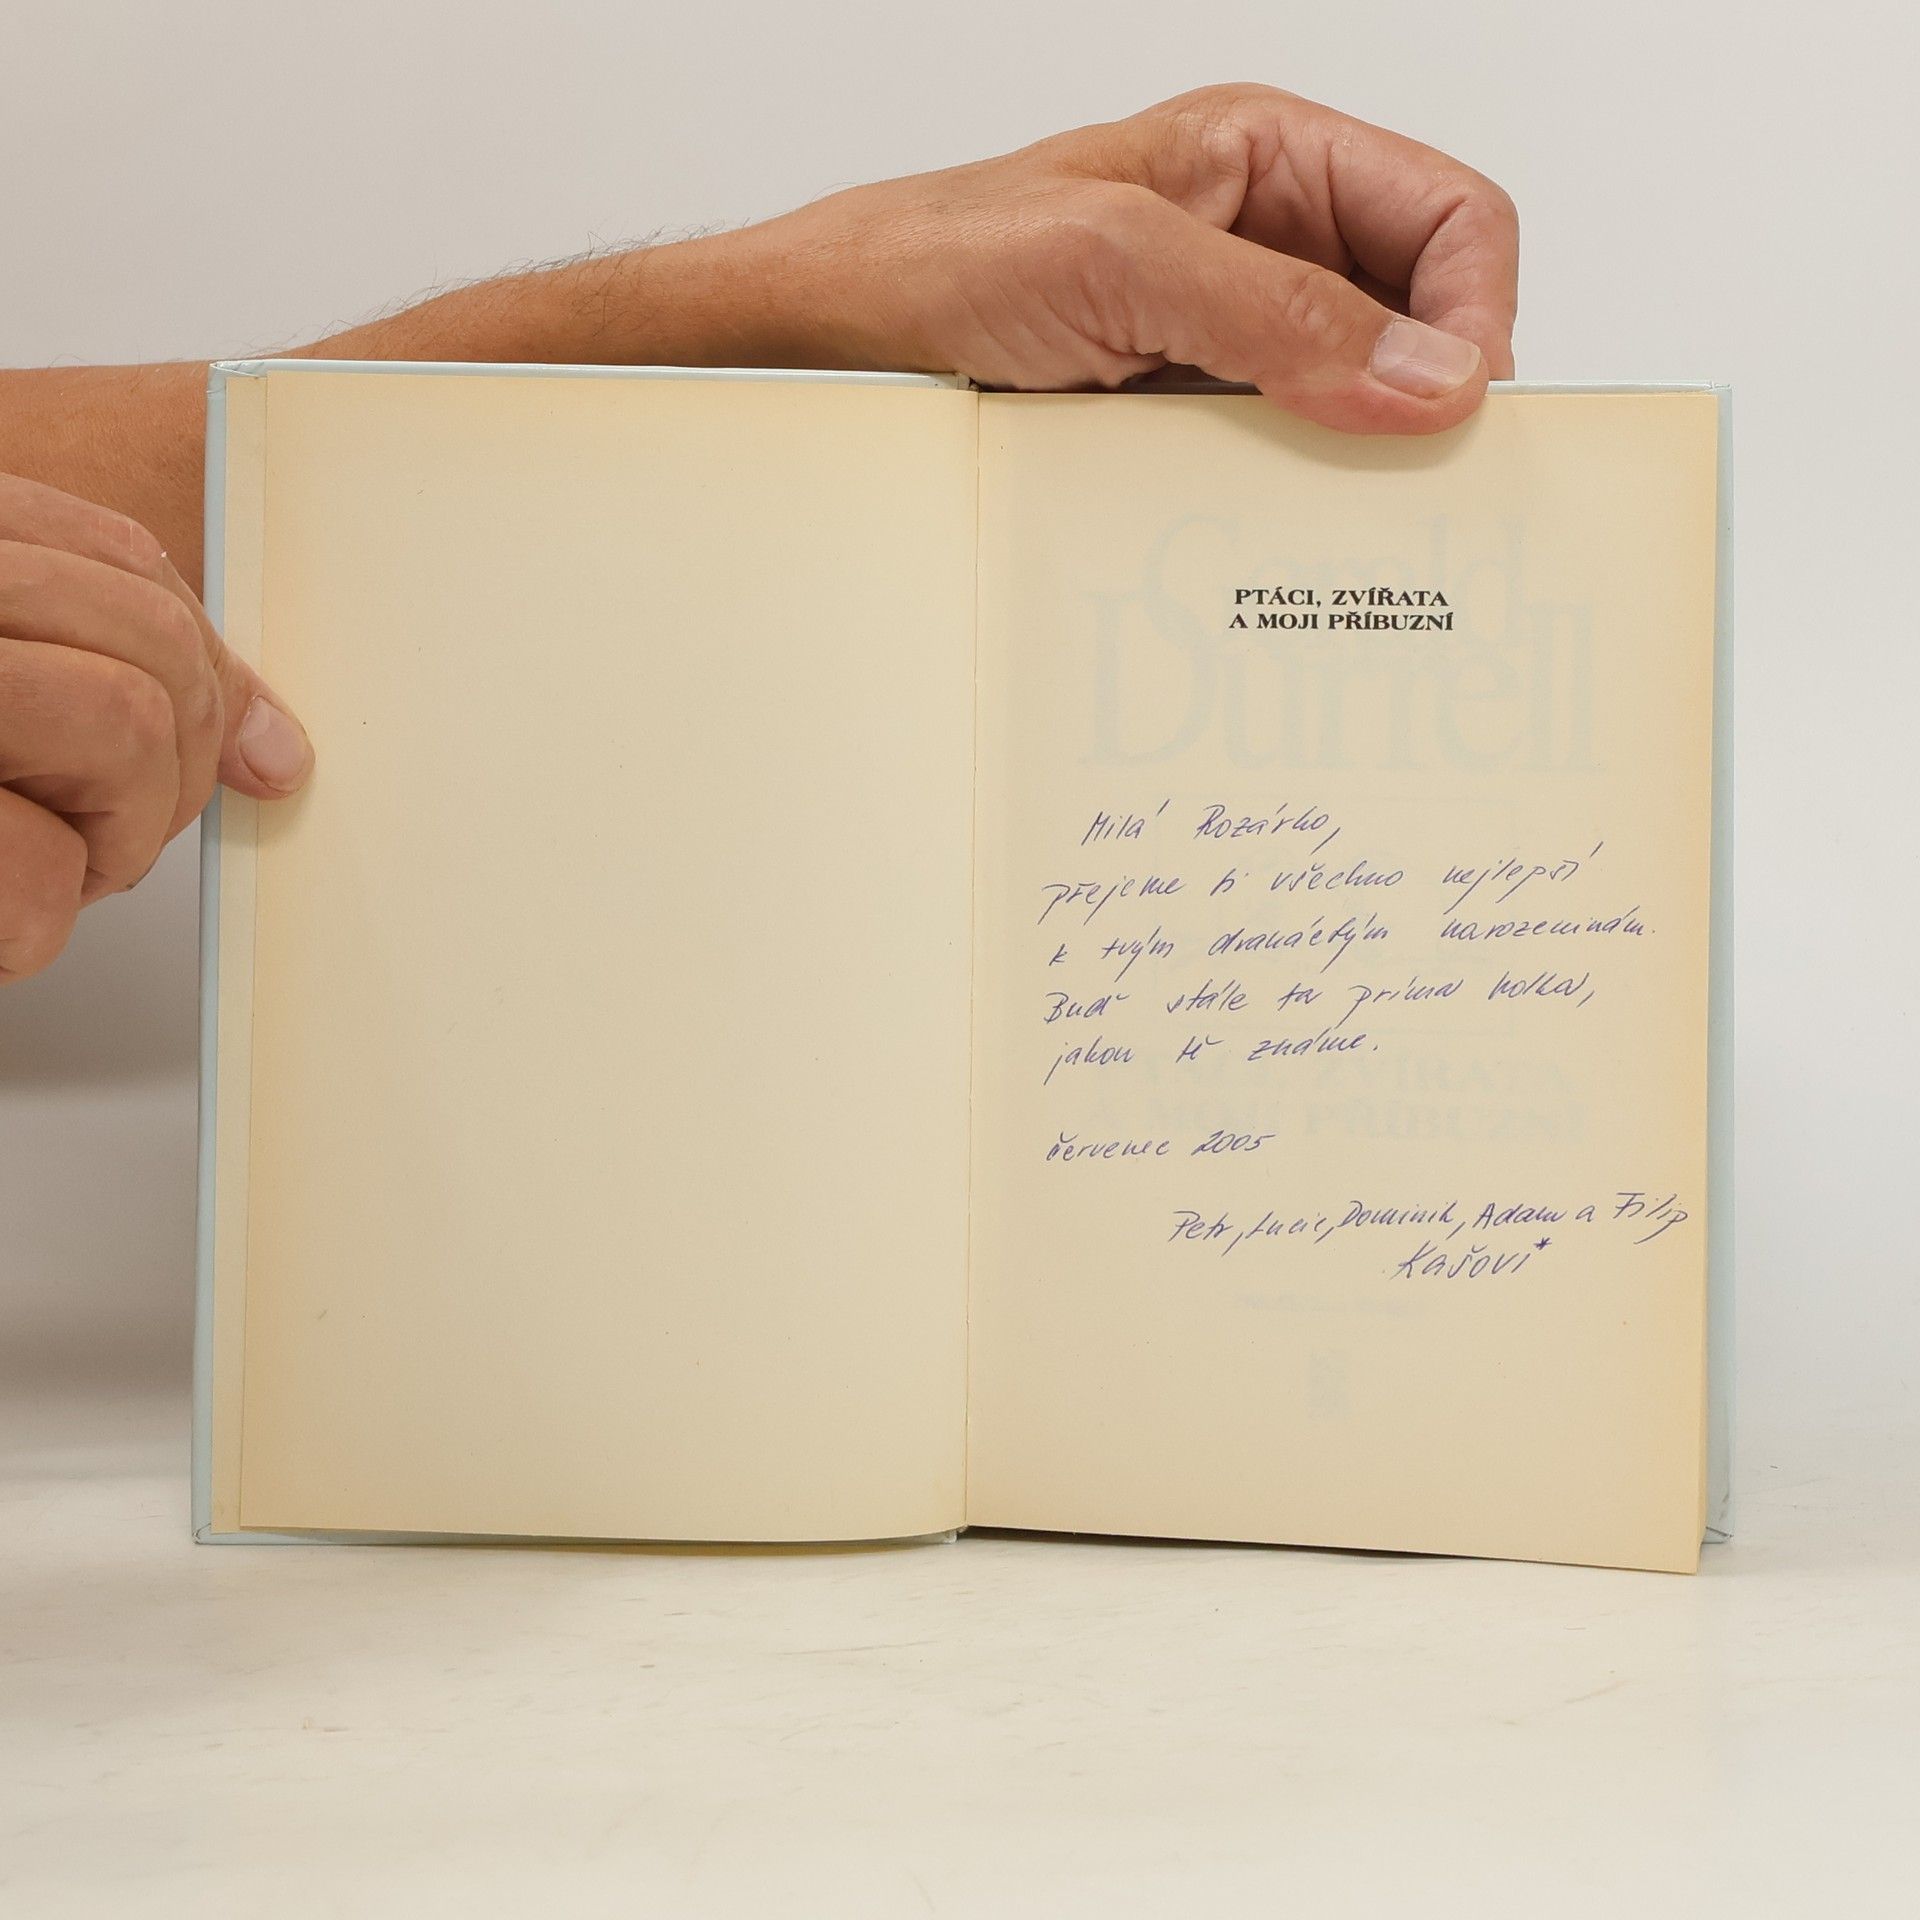 PTÁCI, ZVÍŘATA
A MOJI PŘÍBUZNÍ
Gerald
Durrell
Milá Rozárko,
přejeme ti všechno nejlepší
k tvým dvanáctým narozeninám.
Buď stále ta príma holka,
jakou tě známe.
červenec 2005
Petr, Lucie, Dominik, Adam a Filip
Kašovi*